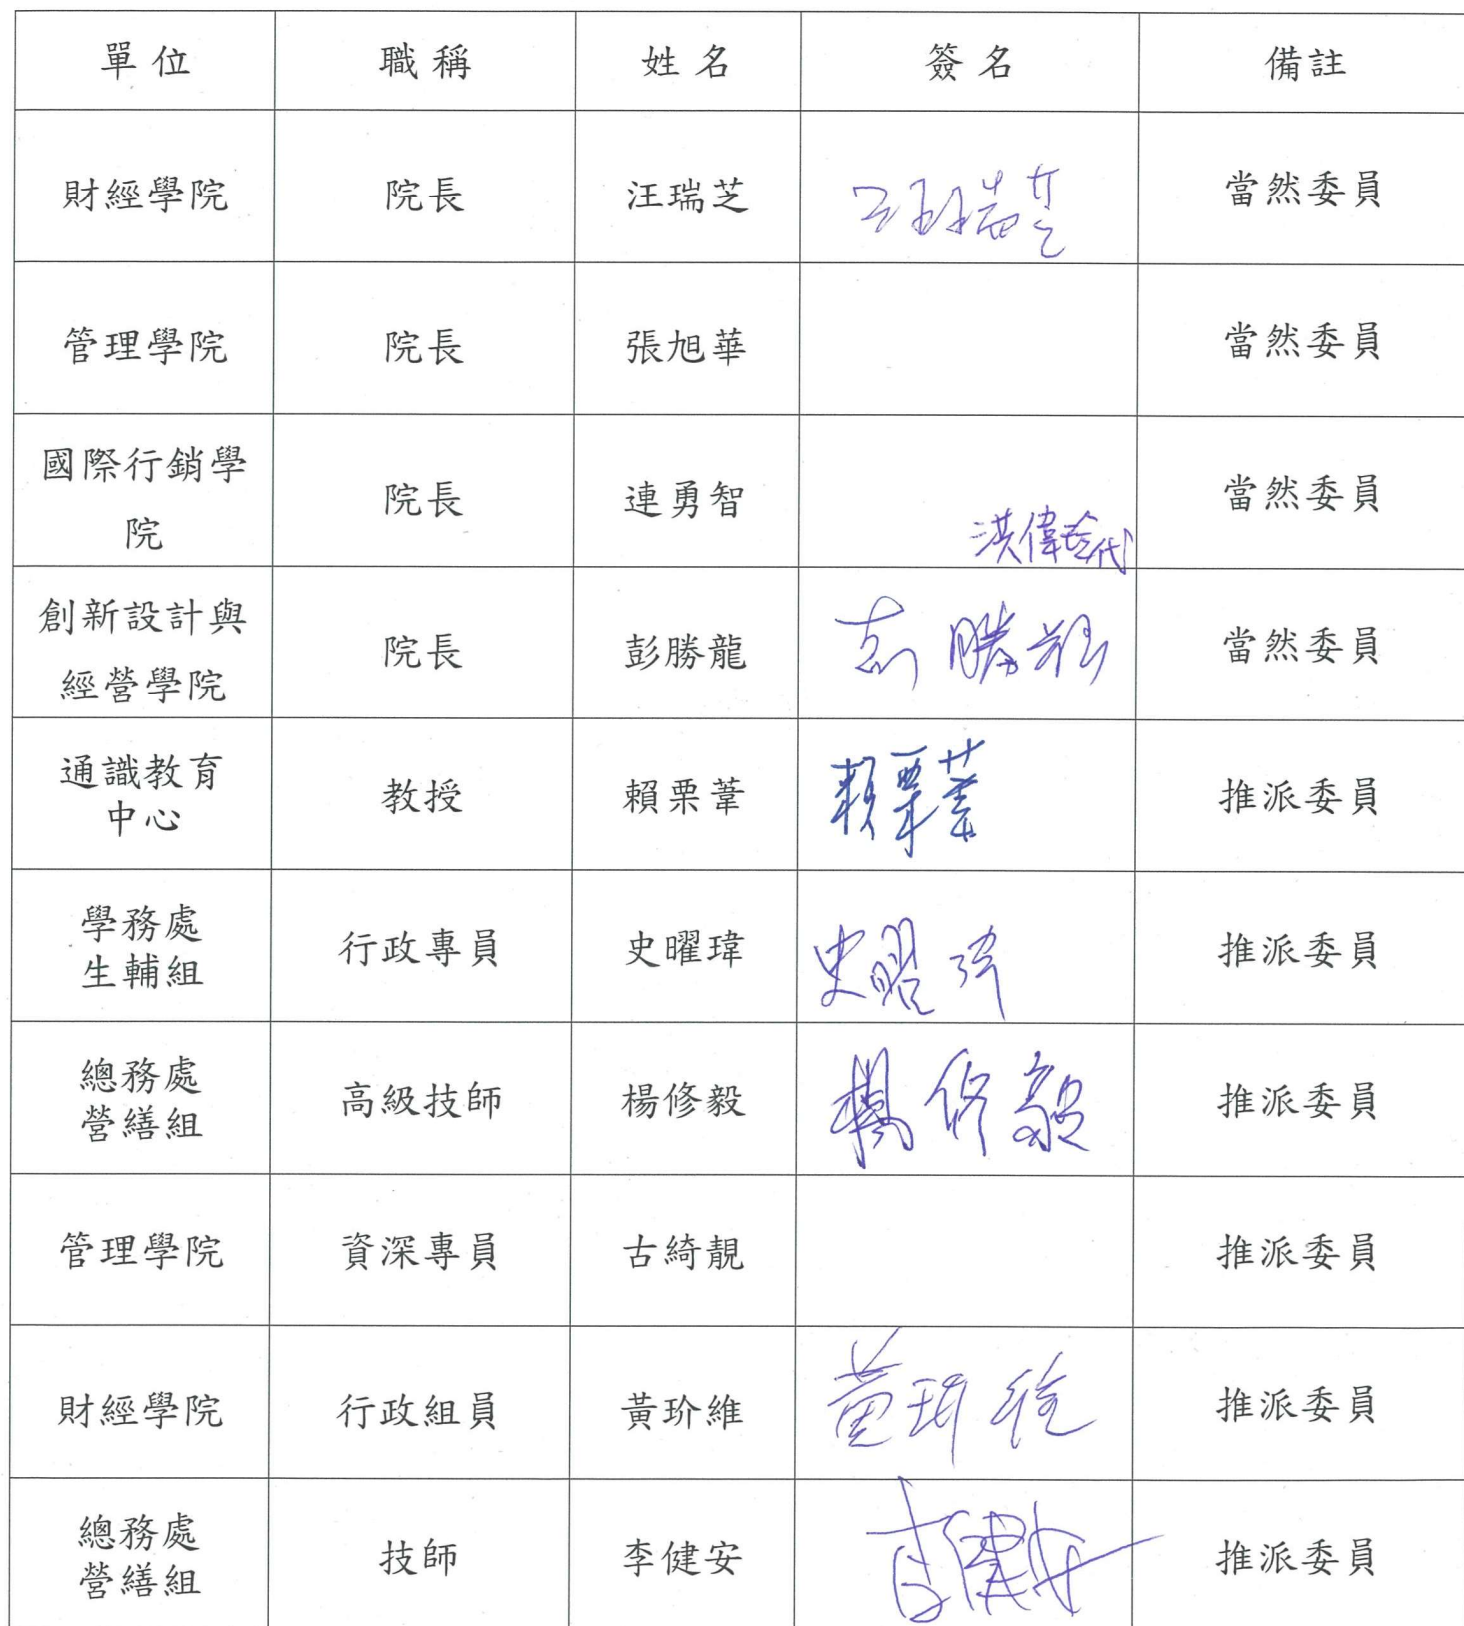 單位 職稱 姓名 簽名 備註
財經學院 院長 汪瑞芝 汪瑞芝 當然委員
管理學院 院長 張旭華 當然委員
國際行銷學
院 院長 連勇智 洪偉 代 當然委員
創新設計與
經營學院 院長 彭勝龍 彭勝龍 當然委員
通識教育
中心 教授 賴栗葦 賴栗葦 推派委員
學務處
生輔組 行政專員 史曜瑋 史曜瑋 推派委員
總務處
營繕組 高級技師 楊修毅 楊修毅 推派委員
管理學院 資深專員 古綺靚 推派委員
財經學院 行政組員 黃玠維 黃玠維 推派委員
總務處
營繕組 技師 李健安 李健安 推派委員